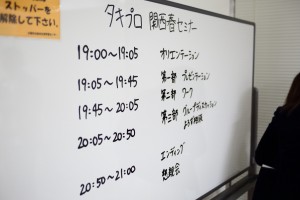 ストッパーを
解除して下さい。
タキプロ 関西春セミナー
19:00～19:05 オリエンテーション
19:05～19:45 第一部 プレゼンテーション
19:45～20:05 第二部 ワーク
20:05～20:50 第三部 グループディスカッション
よろず相談
エンディング
20:50～21:00 懇親会